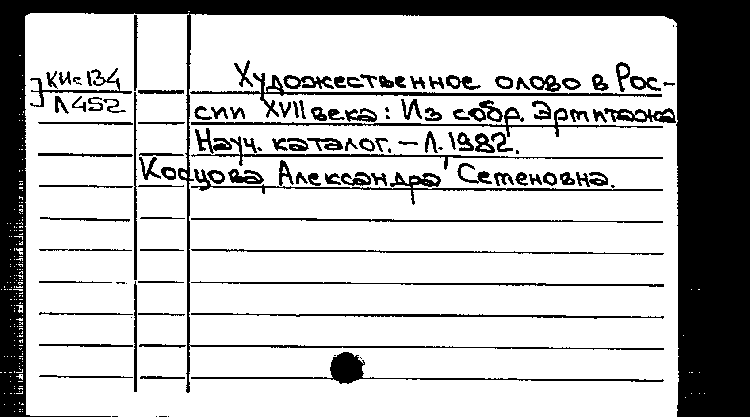 КИ-134
Л452
Художественное олово в Рос-
сии XVII века: Из собр. Эрмитажа
Науч. каталог. – Л. 1982.
Косцова, Александра Семеновна.